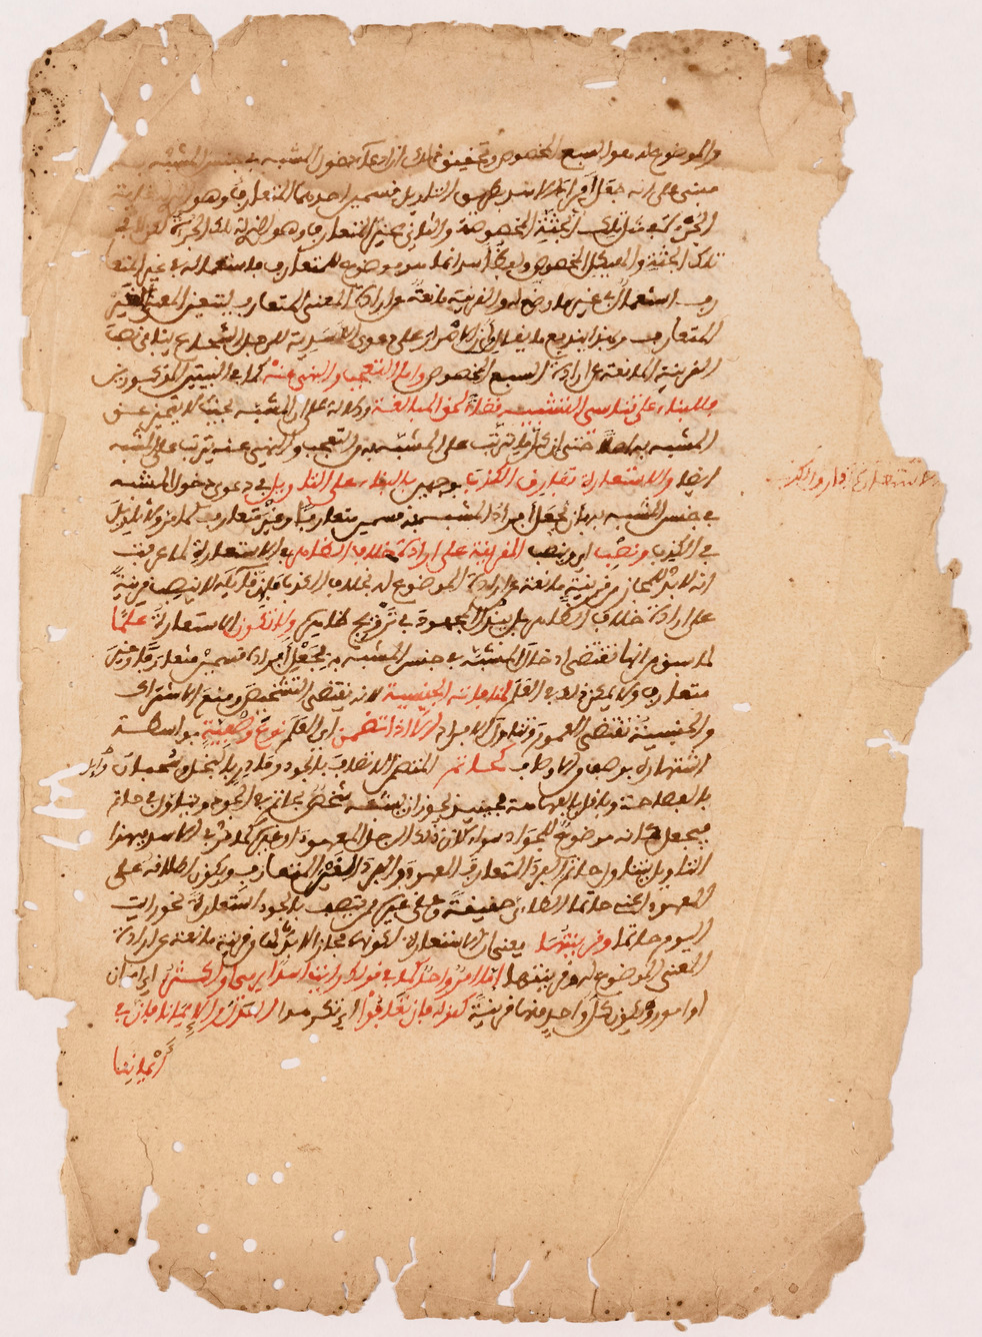 والموضوع له هو السبع المخصوص وتحقيق ذلك ان ادعاء دخول المشبه في جنس المشبه به
مبني على انه جعل افراد الاسد بطريق التاويل قسمين احدهما المتعارف وهو الذي له غاية
الجرءة في مثل تلك الجثة المخصوصة والثاني غير المتعارف وهو الذي له تلك الجرءة لكن لا في
تلك الجثة والهيكل المخصوص ولفظ اسد انما هو موضوع للمتعارف فاستعماله في غير المتعا
رف استعمال في غير ما وضع له والقرينة مانعة عن ارادة المعنى المتعارف ليتعين المعنى الغير
المتعارف وبهذا يندفع ما يقال ان الاصرار على دعوى الاسدية للرجل الشجاع ينافي نصب
القرينة المانعة عن ارادة السبع المخصوص واما التعجب والنهي عنه كما في البيتين المذكورين
فللبناء على تناسي التشبيه قضاء لحق المبالغة ودلالة على ان المشبه بحيث لا يتميز عن
المشبه به اصلا حتى ان كل ما يترتب على المشبه به من التعجب والنهي عنه يترتب على المشبه
ايضا والاستعارة تفارق الكذب بوجهين بالبناء على التاويل في دعوى دخول المشبه
في جنس المشبه به بان يجعل افراد المشبه به قسمين متعارفا وغير متعارف كما مر ولا تاويل
في الكذب ونصب اي وبنصب القرينة على ارادة خلاف الظاهر في الاستعارة لما عرفت
انه لا بد للمجاز من قرينة مانعة عن ارادة الموضوع له بخلاف الكذب فان قائله لا ينصب قرينة
على ارادة خلاف الظاهر بل يبذل المجهود في ترويج ظاهره ولا تكون الاستعارة علما
لما سبق من انها تقتضي ادخال المشبه في جنس المشبه به بجعل افراده قسمين متعارفا وغير
متعارف ولا يمكن ذلك في العلم لمنافاته الجنسية لانه يقتضي التشخص ومنع الاشتراك
والجنسية تقتضي العموم وتناول الافراد الا اذا تضمن اي العلم نوع وصفية بواسطة
اشتهاره بوصف من الاوصاف كحاتم المتضمن الاتصاف بالجود ومادر بالبخل وسحبان وائل
بالفصاحة وباقل بالفهاهة فحينئذ يجوز ان يشبه شخص بحاتم في الجود ويتاول في حاتم
فيجعل كانه موضوع للجواد سواء كان ذلك الرجل المعهود او غيره كما مر في الاسد فبهذا
التاويل يتناول حاتم الفرد المتعارف المعهود والفرد الغير المتعارف ويكون اطلاقه على
المعهود اعني حاتما الطائي حقيقة وعلى غيره ممن يتصف بالجود استعارة نحو رايت
اليوم حاتما وقرينتها يعني ان الاستعارة لكونها مجازا لا بد لها من قرينة مانعة عن ارادة
المعنى الموضوع له وقرينتها اما امر واحد كما في قولك رايت اسدا يرمي او اكثر اي امران
او امور يكون كل واحد منها قرينة كقوله فان تعافوا اي تكرهوا العدل والايمانا فان في
ايماننا